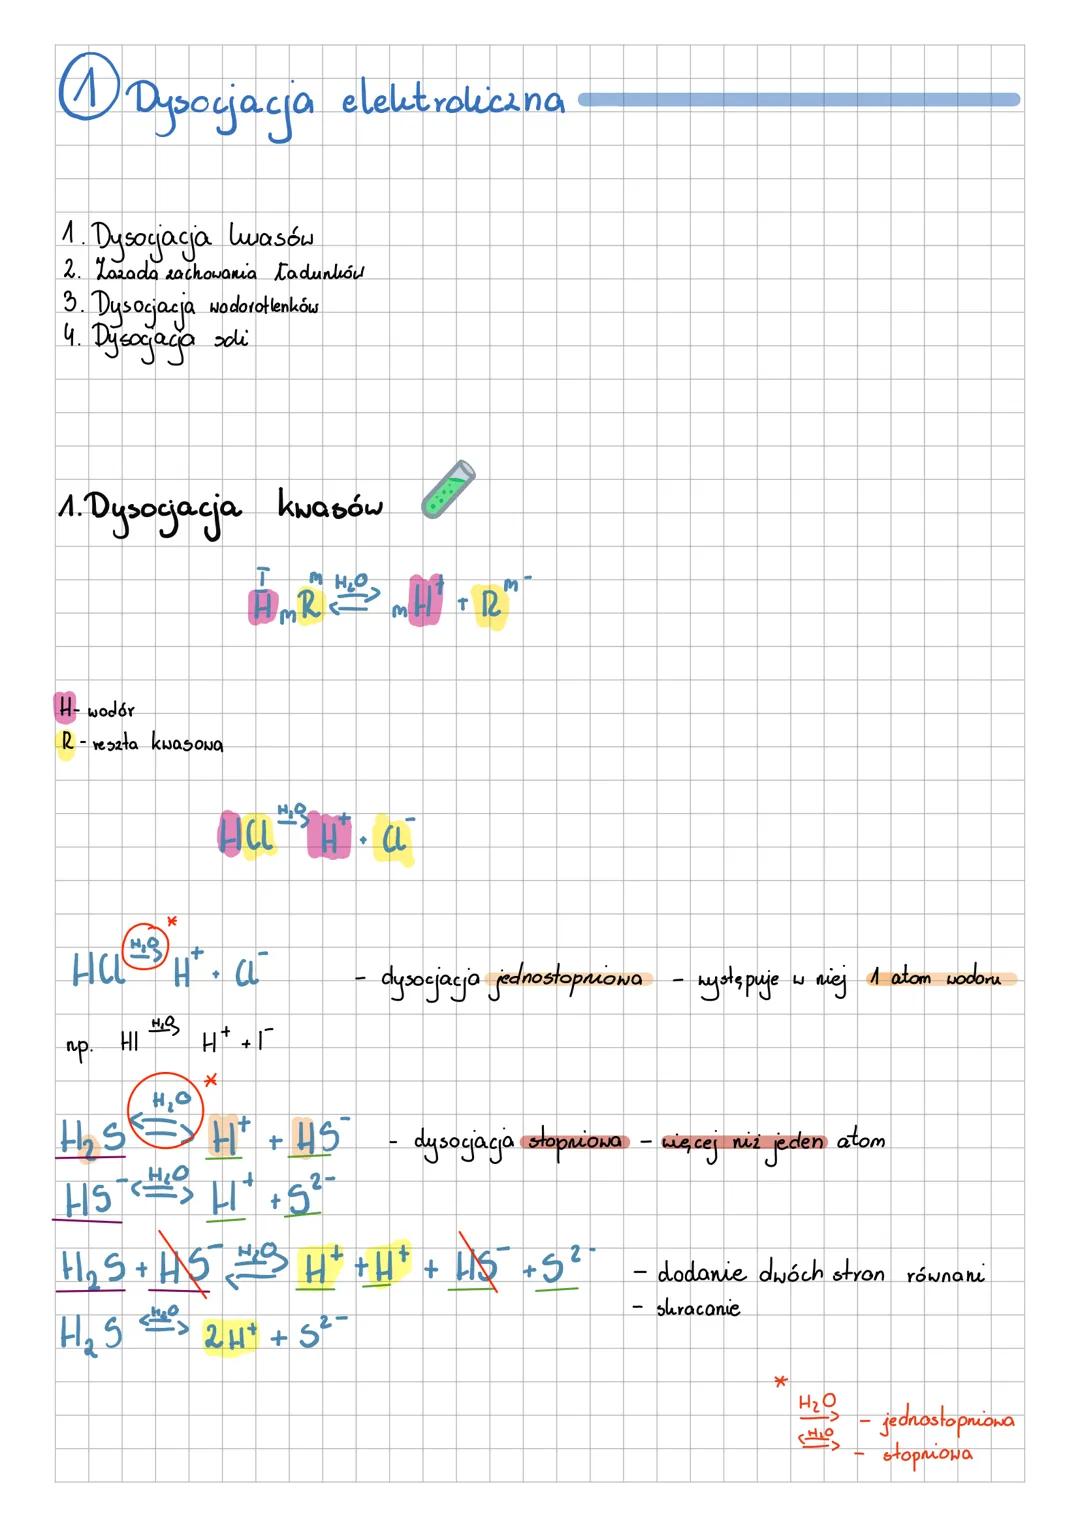 1 Dysocjacja elektroliczna
1. Dysocjacja kwasów
2. Zazada zachowania ładunków
3. Dysocjacja wodorotlenków
4. Dysocjacja soli
1. Dysocjacja kwasów
H^I_m R^m ⇌(H₂O) mH⁺ + R^m-
H - wodór
R - reszta kwasowa
HCl →(H₂O) H⁺ + Cl⁻
HCl →(H₂O) * H⁺ + Cl⁻ - dysocjacja jednostopniowa - występuje w niej 1 atom wodoru
np. HI →(H₂O) H⁺ + I⁻
H₂S ⇌(H₂O) * H⁺ + HS⁻ - dysocjacja stopniowa - więcej niż jeden atom
HS⁻ ⇌(H₂O) H⁺ + S²⁻
H₂S + HS⁻ ⇌(H₂O) H⁺ + H⁺ + HS⁻ + S²⁻ - dodanie dwóch stron równani
- skracanie
H₂S ⇌(H₂O) 2H⁺ + S²⁻
*
→(H₂O) - jednostopniowa
⇌(H₂O) - stopniowa